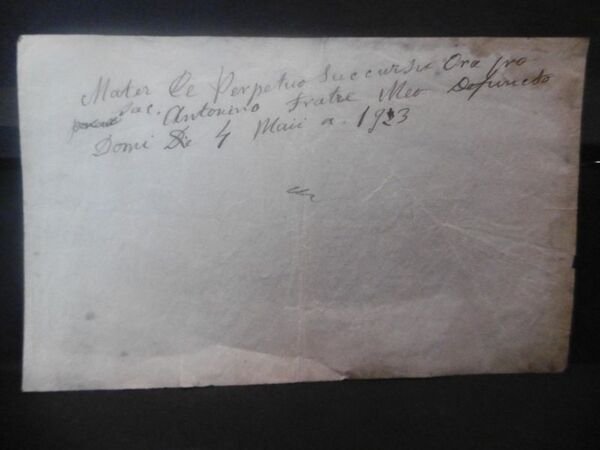 Mater De Perpetuo Succursu Ora pro
Sac. Antonino Fratre Meo Defuncto
Domi Die 4 Maii a. 1923